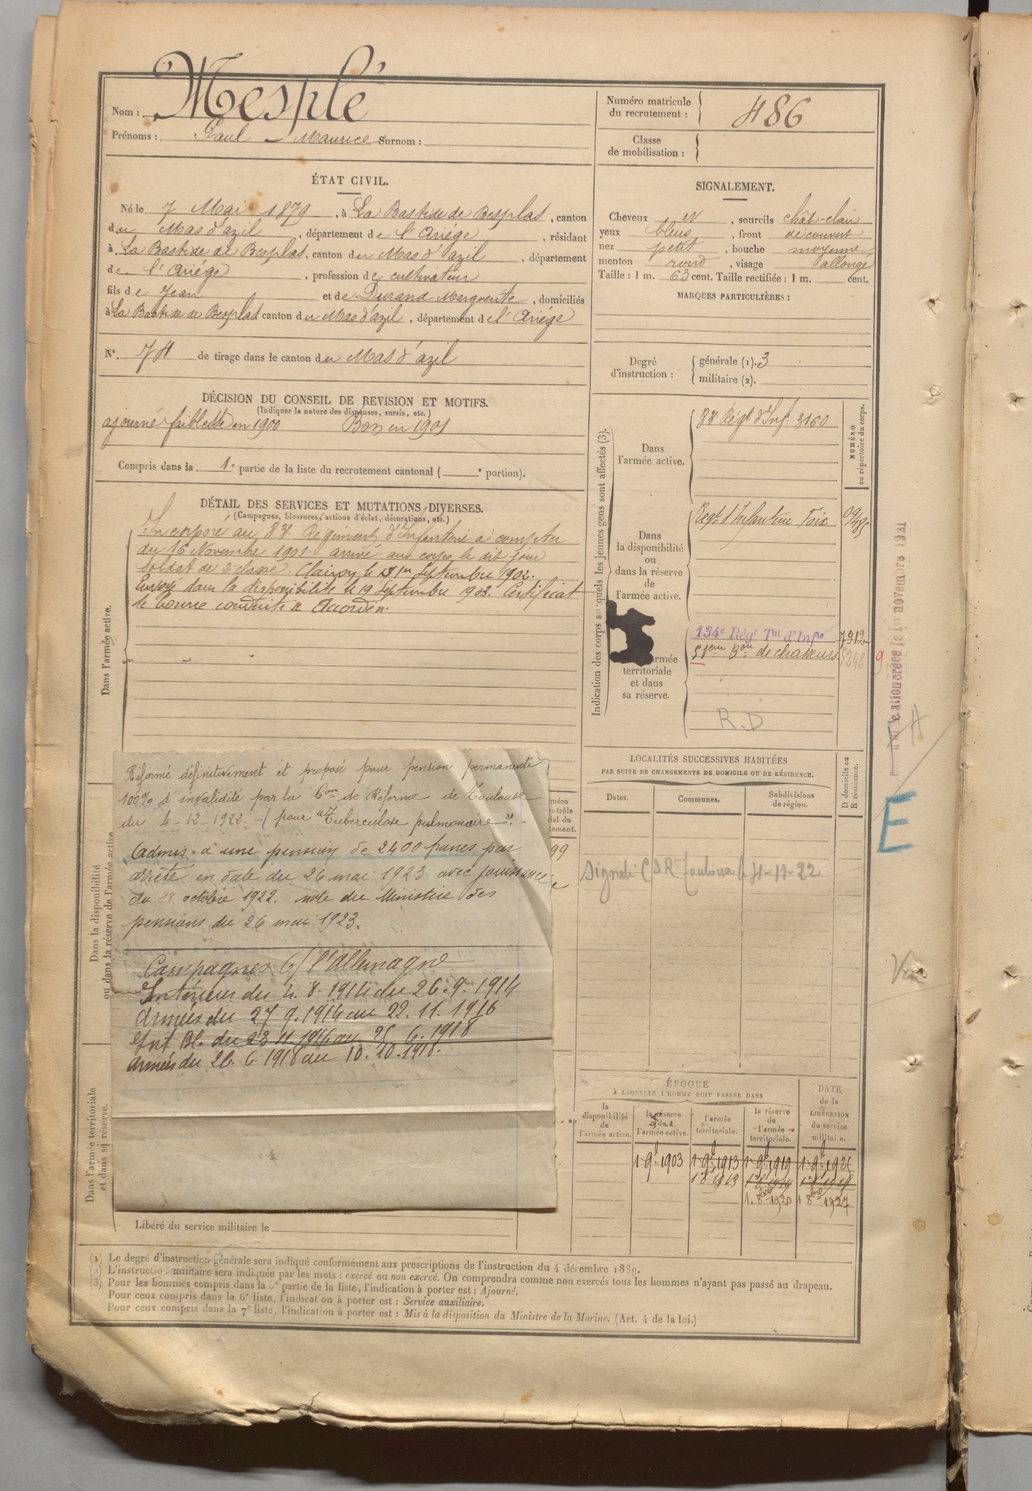 Nom : Mesplé
Prénoms : Paul Maurice Surnom :
Numéro matricule du recrutement : 486
Classe de mobilisation :
ÉTAT CIVIL.
Né le 7 Mai 1879, à La Bastide de Besplas, canton
du Mas d'azil, département de l'Ariége, résidant
à La Bastide de Besplas, canton du Mas d'azil, département
de l'Ariége, profession de cultivateur
fils de Jean et de Durand Marguerite, domiciliés
à La Bastide de Besplas canton du Mas d'azil, département de l'Ariége
N° 74 de tirage dans le canton du Mas d'azil
SIGNALEMENT.
Cheveux et, sourcils chât-clair
yeux bleus, front découvert
nez petit, bouche moyenne
menton rond, visage allongé
Taille : 1 m. 63 cent. Taille rectifiée : 1 m. cent.
MARQUES PARTICULIÈRES :
Degré d'instruction : générale (1). 3
militaire (2).
DÉCISION DU CONSEIL DE REVISION ET MOTIFS.
(Indiquer la nature des dispenses, sursis, etc.)
ajourné faiblesse en 1900 Bon en 1901
Compris dans la 1e partie de la liste du recrutement cantonal ( e portion).
DÉTAIL DES SERVICES ET MUTATIONS DIVERSES.
(Campagnes, blessures, actions d'éclat, décorations, etc.)
Dans l'armée active.
Incorporé au 83e Régiment d'Infanterie à compter
du 16 Novembre 1901 arrivé au corps le dit jour
soldat de 2e classe. Clairon le 21 Septembre 1902.
Envoyé dans la disponibilité le 19 Septembre 1903. Certificat
de bonne conduite " Accordé ".
Indication des corps auxquels les jeunes gens sont affectés (3).
NUMÉRO au répertoire du corps.
Dans l'armée active.
83e Régt d'Inf. 3160
Dans la disponibilité ou dans la réserve de l'armée active.
Régt d'Infanterie Foix
armée territoriale et dans sa réserve.
134e Régt Tal d'Inf
Bon de chasseurs
R.D
novembre 1931
E
Dans la disponibilité ou dans la réserve de l'armée active
Réformé définitivement et proposé pour pension permanente
100% d'invalidité par la Con de Réforme de Toulouse
du 4-12-1922 - (pour "Tuberculose pulmonaire".-
Admis à une pension de 2400 francs par
arrêté en date du 26 mai 1923 avec jouissance
du 18 octobre 1922. note du Ministre des
pensions du 26 mai 1923.
Campagnes C/ l'allemagne
Intérieur du 4.8.1914 au 26.9.1914
Armées du 27 9.1914 au 22.11.1916
Int Bl. du 23 11 1916 au 25.6.1918
Armées du 26 6 1918 au 10.10.1918.
LOCALITÉS SUCCESSIVES HABITÉES
PAR SUITE DE CHANGEMENTS DE DOMICILE OU DE RÉSIDENCE.
Dates. Communes. Subdivisions de région.
D domicile ou R résidence.
Signalé CSR Toulouse
Dans l'armée territoriale et dans sa réserve.
ÉPOQUE
À LAQUELLE L'HOMME DOIT PASSER DANS
la disponibilité de l'armée active.
la réserve de l'armée active.
l'armée territoriale.
la réserve de l'armée territoriale.
DATE de la LIBÉRATION du service militaire.
1 9bre 1903 1 9bre 1913 1 9bre 1919
Libéré du service militaire le
(1) Le degré d'instruction générale sera indiqué conformément aux prescriptions de l'instruction du 4 décembre 1889.
(2) L'instruction militaire sera indiquée par les mots : exercé ou non exercé. On comprendra comme non exercés tous les hommes n'ayant pas passé au drapeau.
(3) Pour les hommes compris dans la 5e partie de la liste, l'indication à porter est : Ajourné.
Pour ceux compris dans la 6e liste, l'indication à porter est : Service auxiliaire.
Pour ceux compris dans la 7e liste, l'indication à porter est : Mis à la disposition du Ministre de la Marine. (Art. 4 de la loi.)